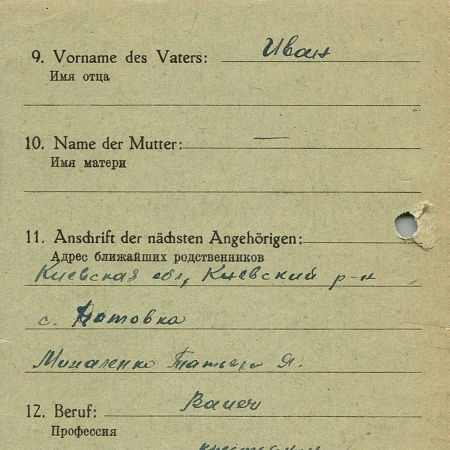 9. Vorname des Vaters: Иван
Имя отца
10. Name der Mutter: —
Имя матери
11. Anschrift der nächsten Angehörigen:
Адрес ближайших родственников
Киевская обл, Киевский р-н
с.
Татьяна Я.
12. Beruf: Bauer
Профессия